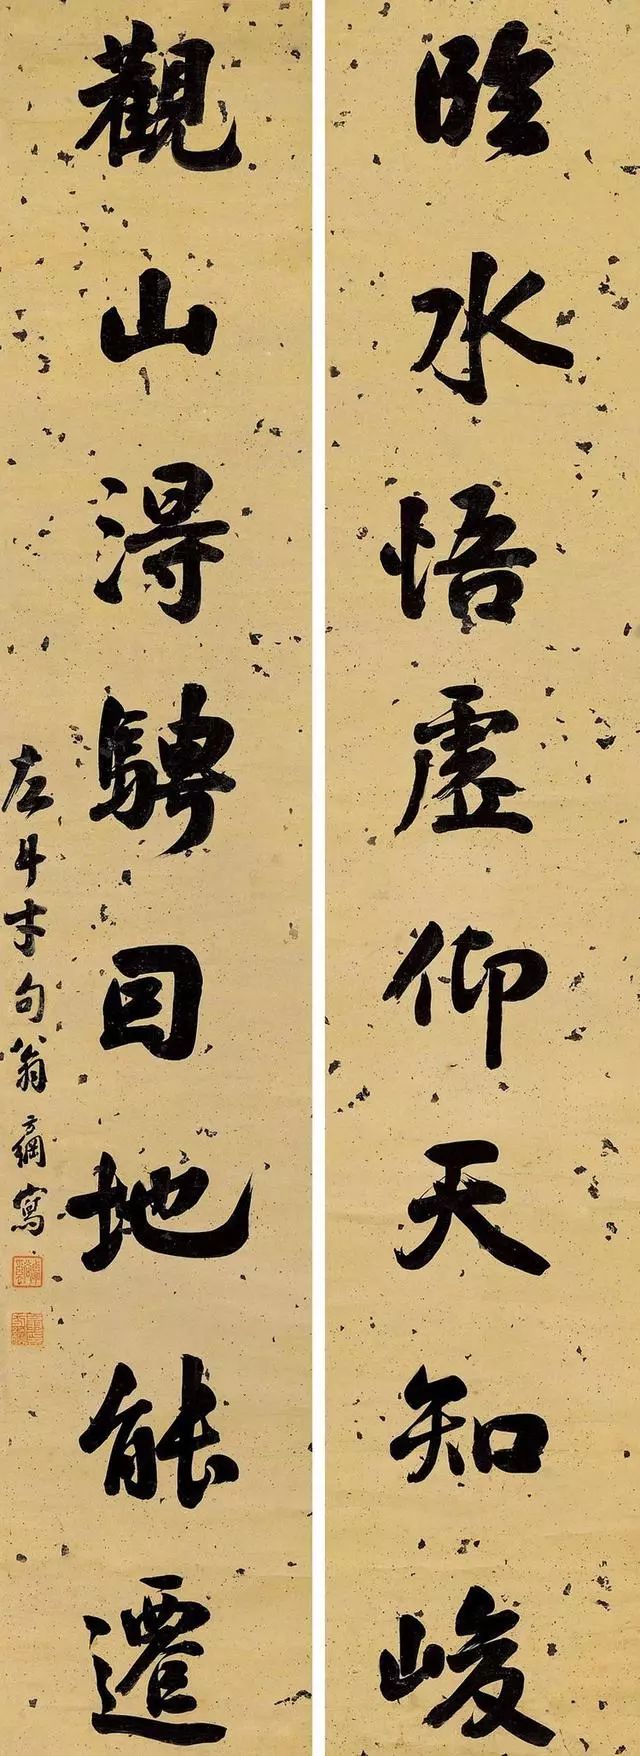 臨水悟虛仰天知峻
觀山得騁因地能遷
左斗才句翁方綱寫